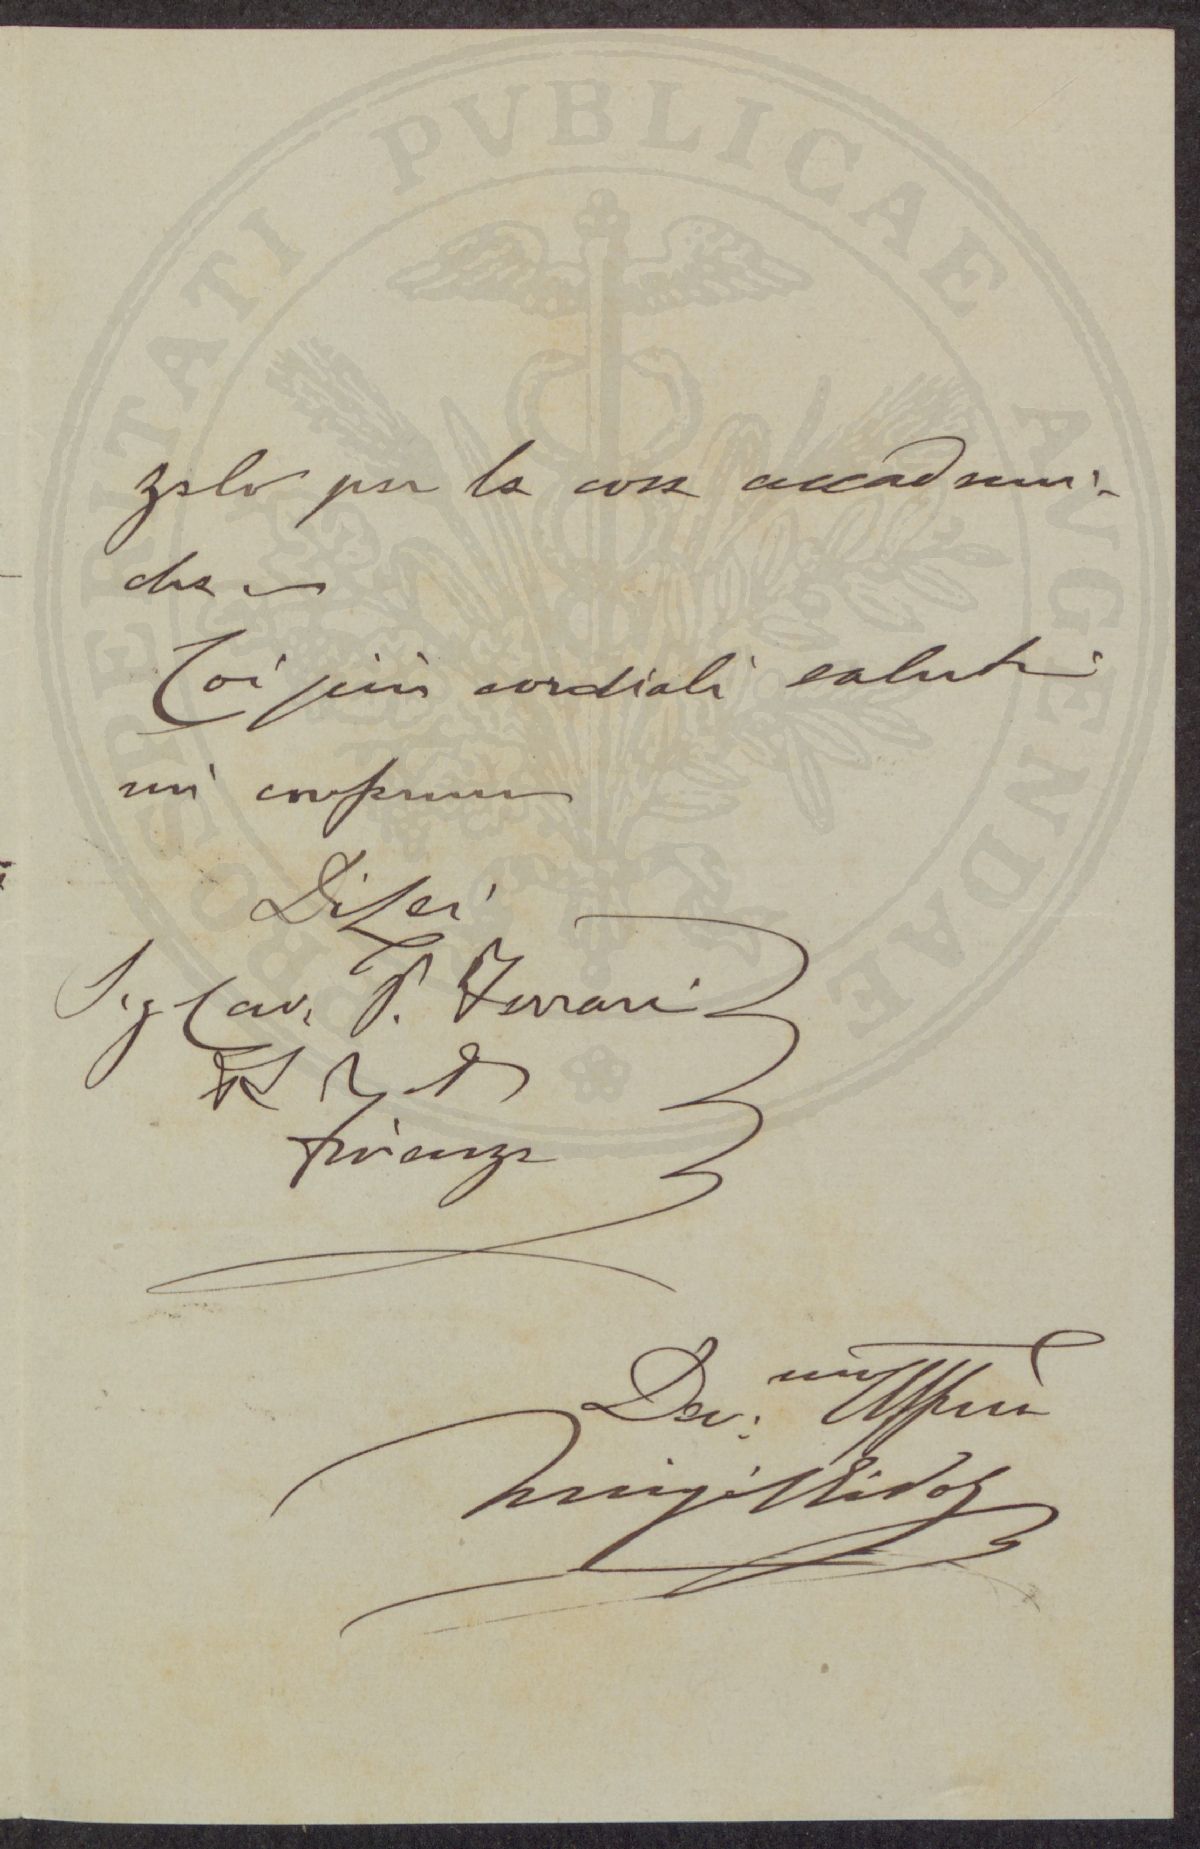 PROSPERITATI PVBLICAE AVGENDAE
zelo per le cose accademi-
che
Coi più cordiali saluti
mi confermo
Di Lei
Sig Cav. P. Ferrari
Firenze
Dev.mo